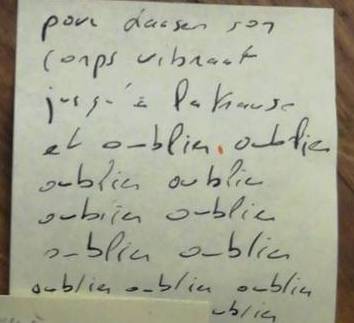 pour laisser son
corps vibrant
jusqu'à la transe
et oublier. oublier
oublier oublier
oublier oublier
oublier oublier
oublier oublier oublier
oublier